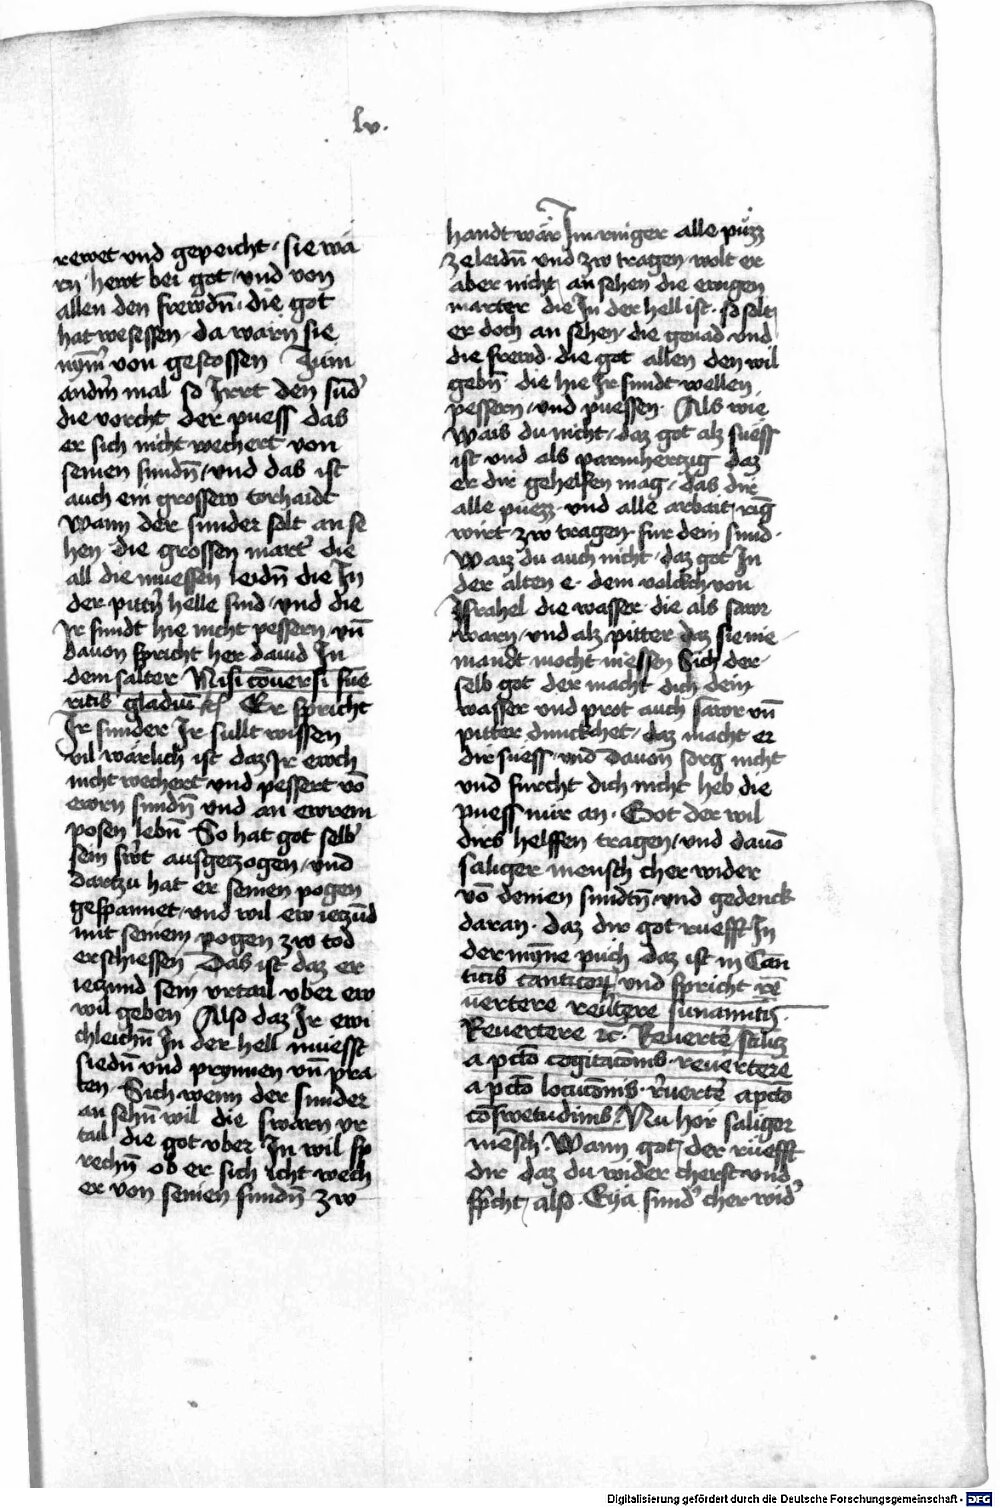 lv.
rewet vnd gepeicht · sie wa
rn · hewt bei got · vnd von
allen den frewdn̄ · die got
hat wesessen · da warn sie
nym̄ von gestossen Zum
andm̄ mal so Irrt den sūd'
die vorcht der puess das
er sich nicht wechert von
seinen sundn̄ / vnd das ist
auch ein grossew torhaidt
Wann der sunder solt an se
hen die grossen mart' die
all die muessen leidn̄ die In
der pittn̄ helle sind · vnd die
Ir sundt hie nicht pessern vn̄
dauon spricht her dauid In
dem salter Nisi cōuersi fue
ritis gladiū Er spricht
Ir sunder Ir sullt wissen
vil wärlich ist daz Ir ewch
nicht wechert vnd pessert vō
ewrn sundn̄ vnd an ewrem
posen lebn̄ So hat got selb'
sein swt ausgezogen / vnd
dartzu hat er seinen pogen
gespannet / vnd wil ew iezūd
mit seinem pogen zw tod
erschiessen Das ist daz er
iezund sein vrtail vber ew
wil geben Also daz Ir ewi
chleichn̄ In der hell muesst
siedn̄ vnd prynnen vn̄ pra
ten · Sich wenn der sunder
an sehn̄ wil die swarn vr
tail die got vber In wil sp
rechn̄ ob er sich icht wech
er von seinen sundn̄ zw
handt wär Im ringer alle puzz
ze leidn̄ vnd zw tragen · wolt er
aber nicht an sehen die ewigen
marter die In der hell ist · so solt
er doch an sehen · die genad vnd
die frewd · die got allen den wil
gebn̄ · die hie Ir sundt wellen
pessern / vnd puessen · Als wie
Wais du nicht / daz got alz suess
ist vnd als parmhertzig daz
er dir gehelfen mag / das dir
alle puezz · vnd alle arbait · rīg
wirt zw tragen · fur dein sund ·
Waiz du auch nicht · daz got In
der alten e · dem volckch von
Israhel die wasser · die als sawr
warn / vnd alz pitter daz sie nie
mandt mocht niessen Sich der
selb got der macht dich dein
wasser vnd prot auch sawr vn̄
pitter dunckchet / daz macht er
dir suess · vnd dauon sorg nicht
vnd furcht dich nicht heb die
puess nur an · Got der wil
dirs helffen tragen / vnd dauō
saliger mensch cher wider
vō deinen sundtn̄ / vnd gedenck
daran · daz dir got ruefft In
der mȳne puch daz ist in Can
ticis canticor vnd spricht re
uertere reūtere sunamitis ·
Reuertere zc · Reuerte scilicz
a pctō cogitacōnis · reuertere
a pctō locucōnis · r'uerte a pctō
cōswetudinis / Nu hor saliger
mensch · Wann got / der ruefft
dir daz du wider cherst · vnd
spricht / also · Eya sund' cher wid'
Digitalisierung gefördert durch die Deutsche Forschungsgemeinschaft - DFG